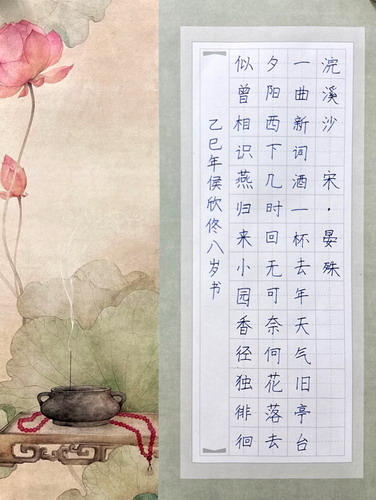 浣溪沙 宋·晏殊
一曲新词酒一杯去年天气旧亭台
夕阳西下几时回无可奈何花落去
似曾相识燕归来小园香径独徘徊
乙巳年侯欣佟八岁书